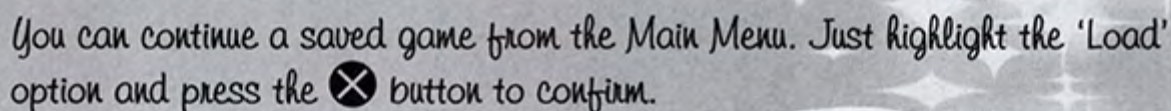 You can continue a saved game from the Main Menu. Just highlight the ‘Load’
option and press the ⓧ button to confirm.